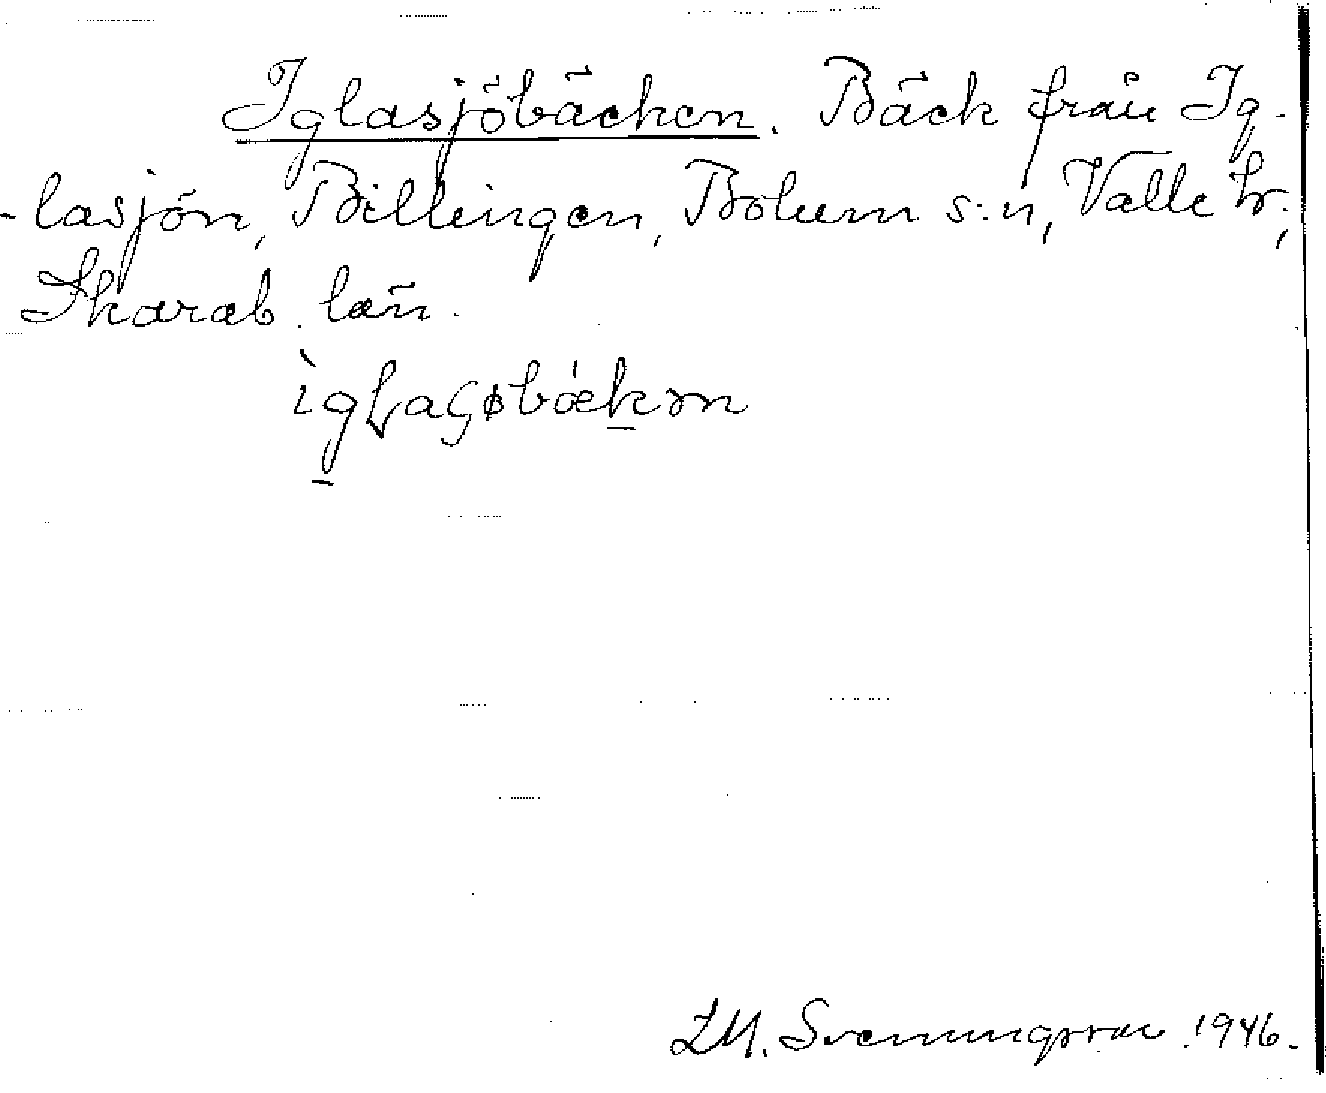 Iglasjöbäcken. Bäck från Ig-
-lasjön, Billingen, Bolum s:n, Valle hr,
Skarab. län.
Svenningsson 1946.